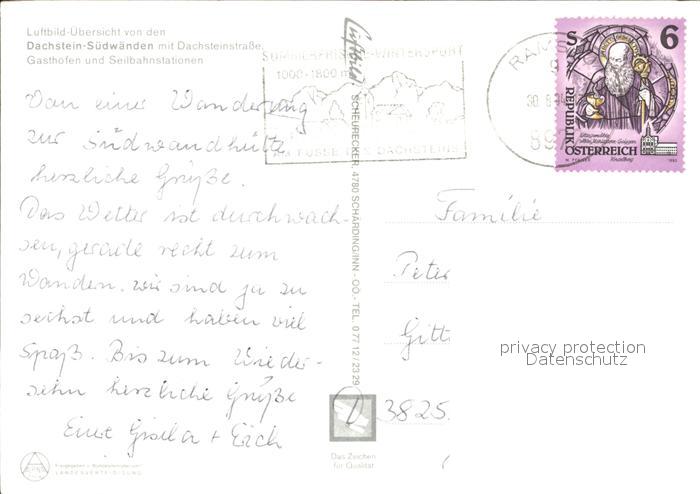 Luftbild-Übersicht von den
Dachstein-Südwänden mit Dachsteinstraße,
Gasthöfen und Seilbahnstationen
Von einer Wanderung
zur Südwandhütte
herzliche Grüße.
Das Wetter ist durchwach-
sen, gerade recht zum
Wandern. wir sind ja zu
sechst und haben viel
Spaß. Bis zum Wieder-
sehn herzliche Grüße
Eure Gisela + Erich
Freigegeben v. Bundesministerium f.
LANDESVERTEIDIGUNG
Luftbild
SCHEURECKER, 4780 SCHÄRDING/INN - OÖ. - TEL. 0 77 12 / 23 29
Das Zeichen
für Qualität
SOMMERFRISCHE-WINTERSPORT
1000-1800 m
AM FUSSE DES DACHSTEINS
RAMS
30. 8.
89
S 6
REPUBLIK
ÖSTERREICH
Familie
Peter
Gitt
D 3825
privacy protection
Datenschutz